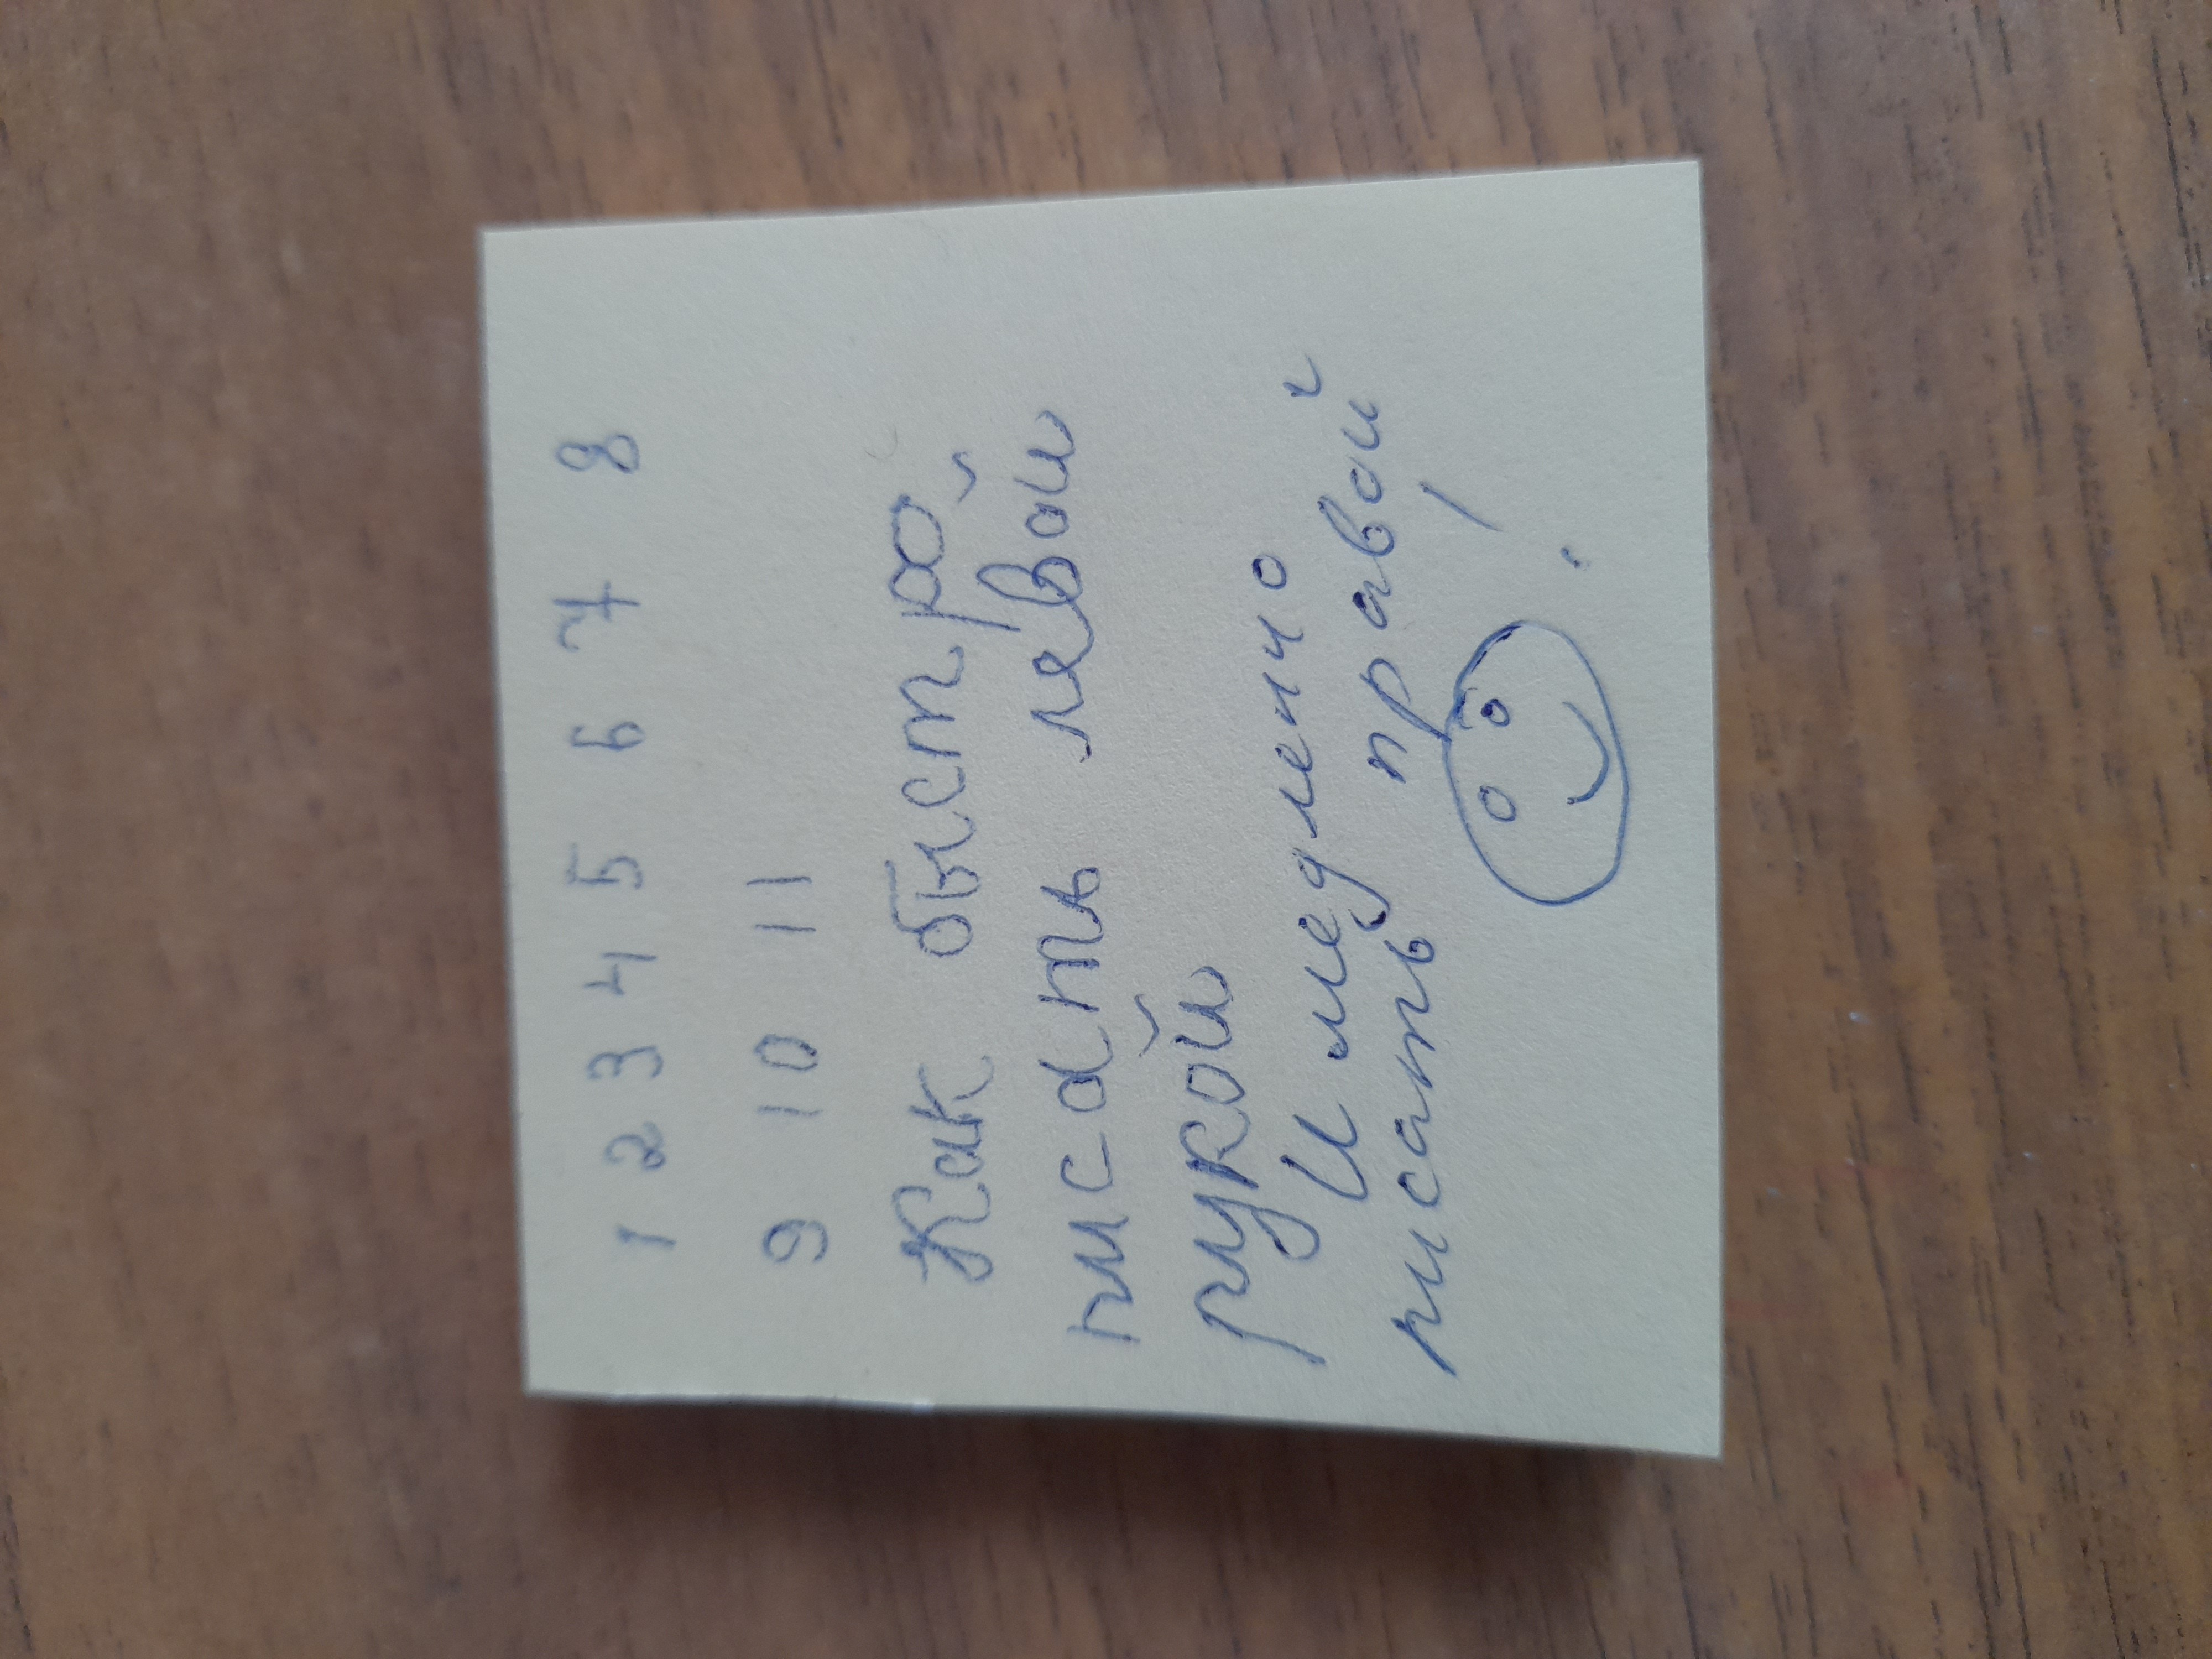 1 2 3 4 5 6 7 8
9 10 11
Как быстро
писать левой
рукой
И медленно
писать правой
!